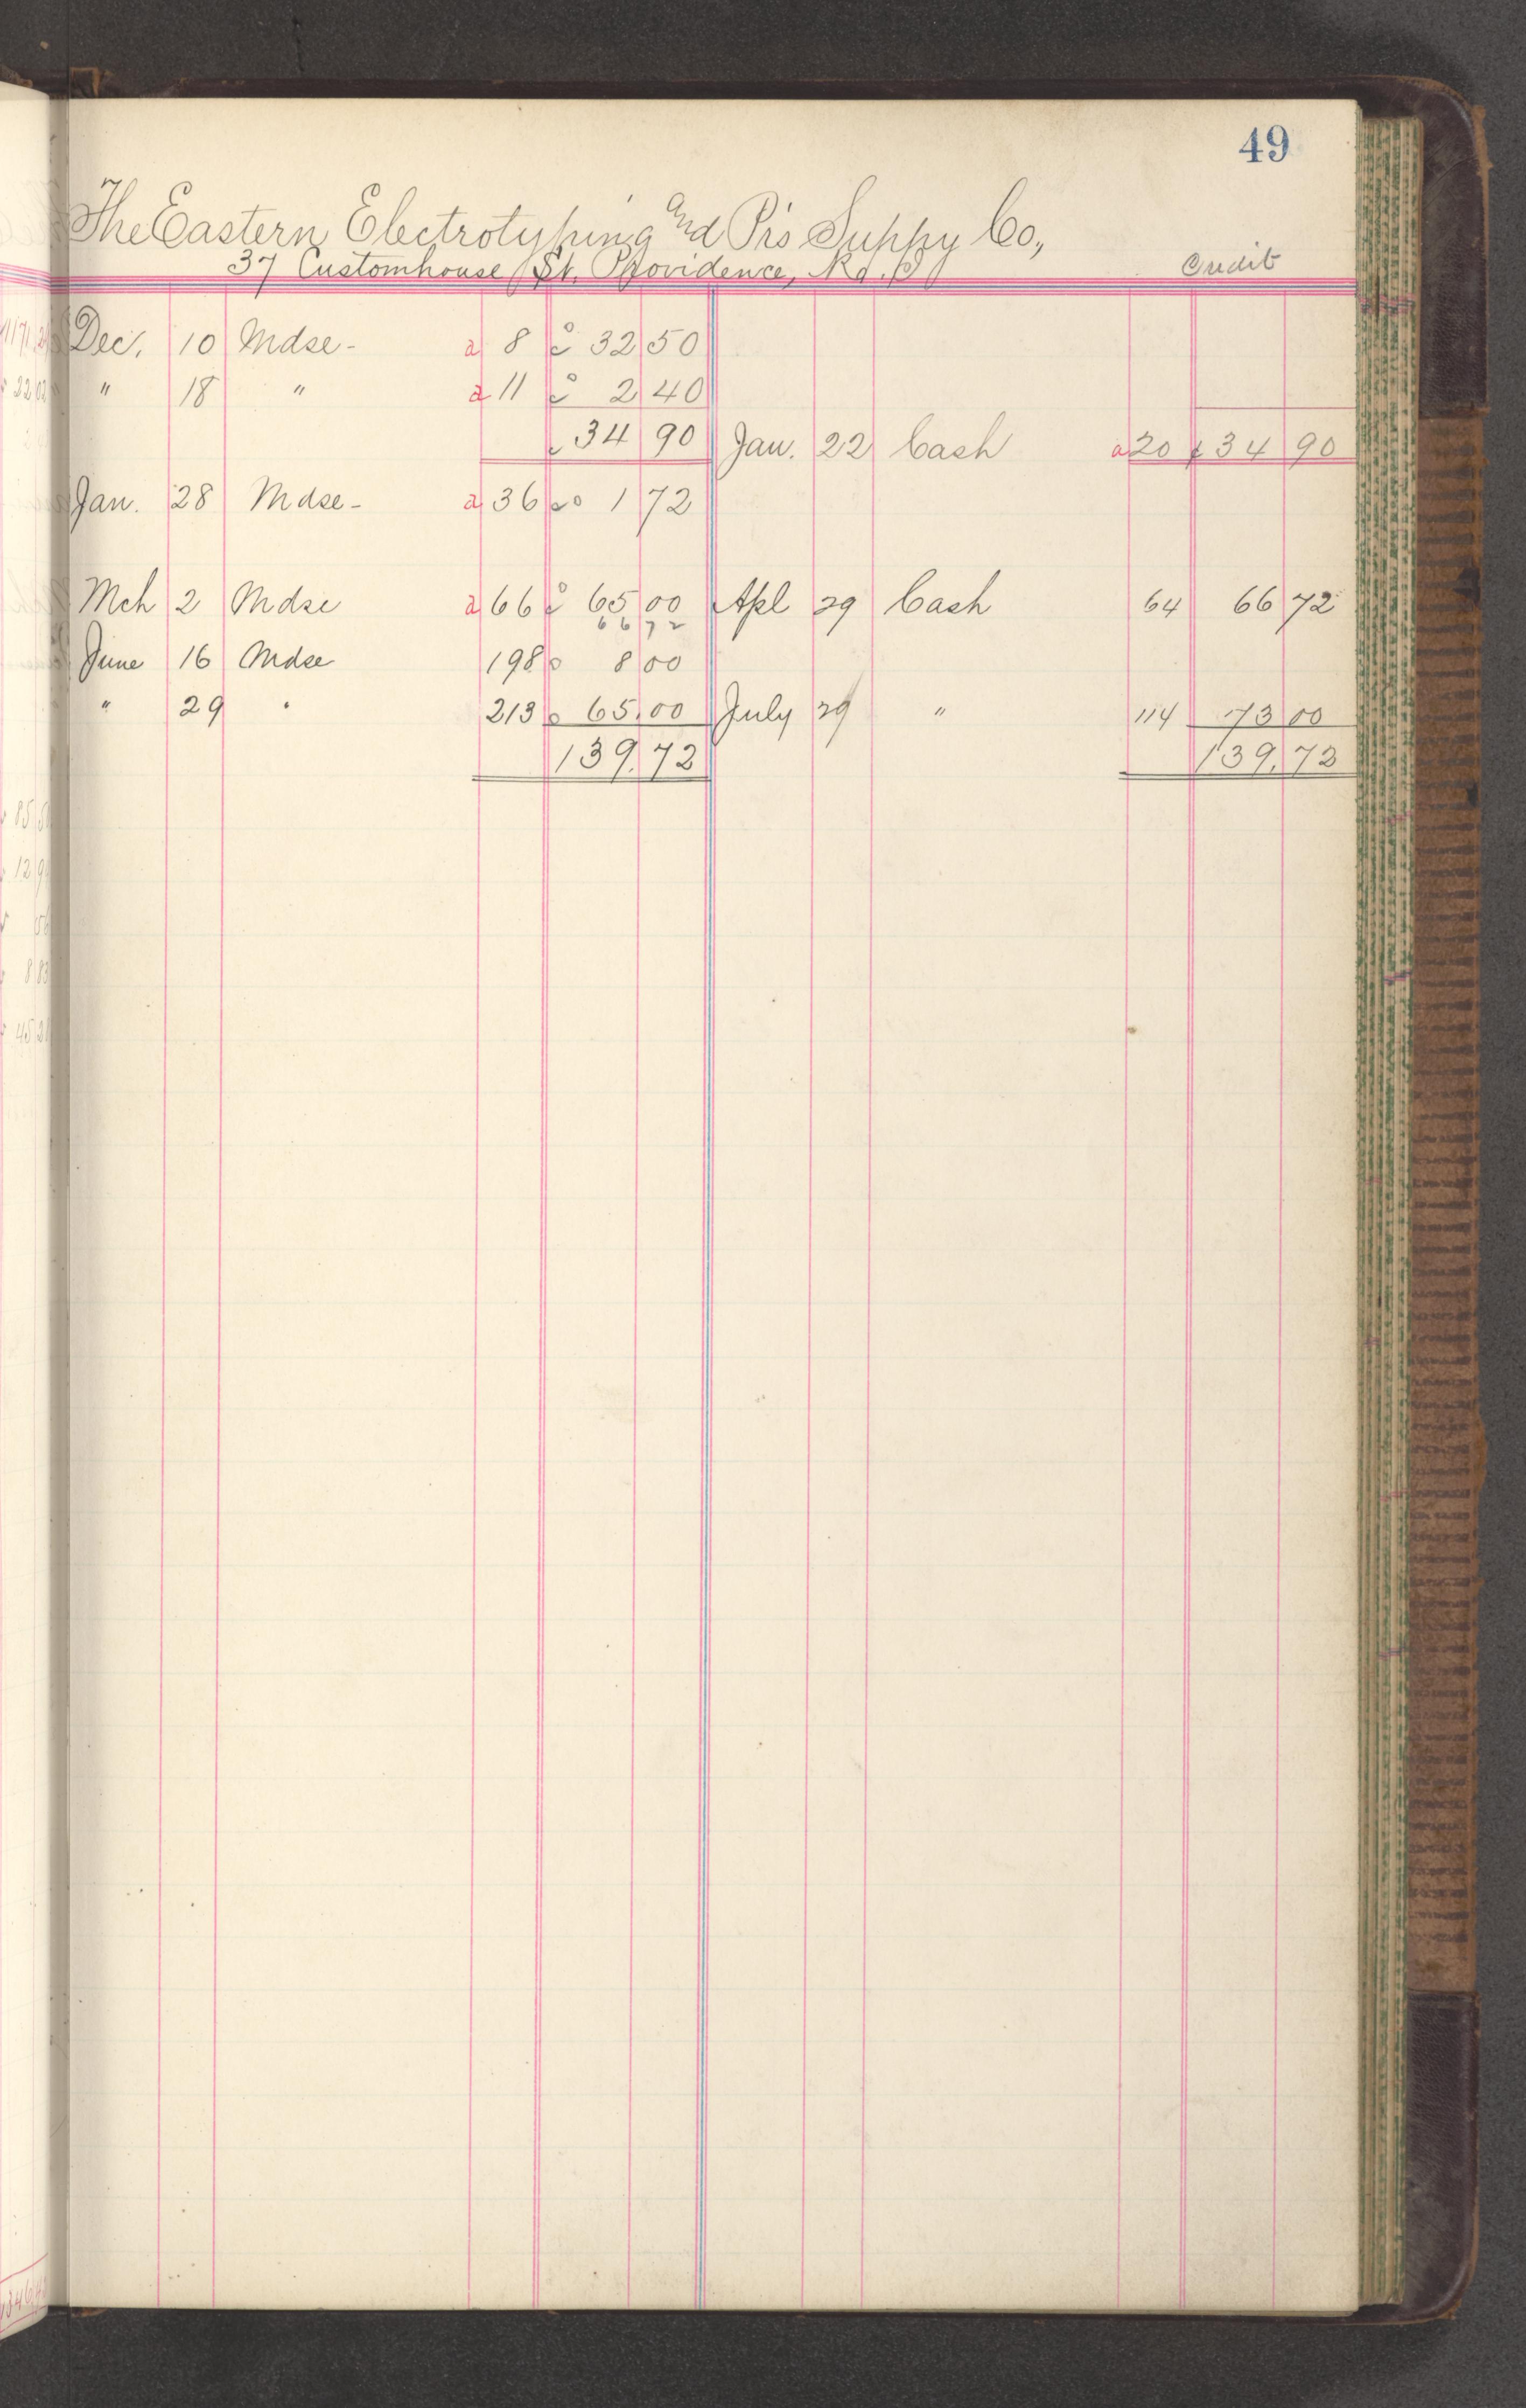 49
The Eastern Electrotyping and Prs Suppy Co.,
37 Customhouse St. Providence, R.I. Credit
Dec. 10 Mdse - a 8 32 50
" 18 " a 11 2 40
34 90 Jan. 22 Cash a 20 34 90
Jan. 28 Mdse - a 36 1 72
Mch 2 Mdse a 66 65 00 Apl 29 Cash 64 66 72
66 72
June 16 Mdse 198 8 00
" 29 " 213 65.00 July 29 " 114 73 00
139.72 139.72